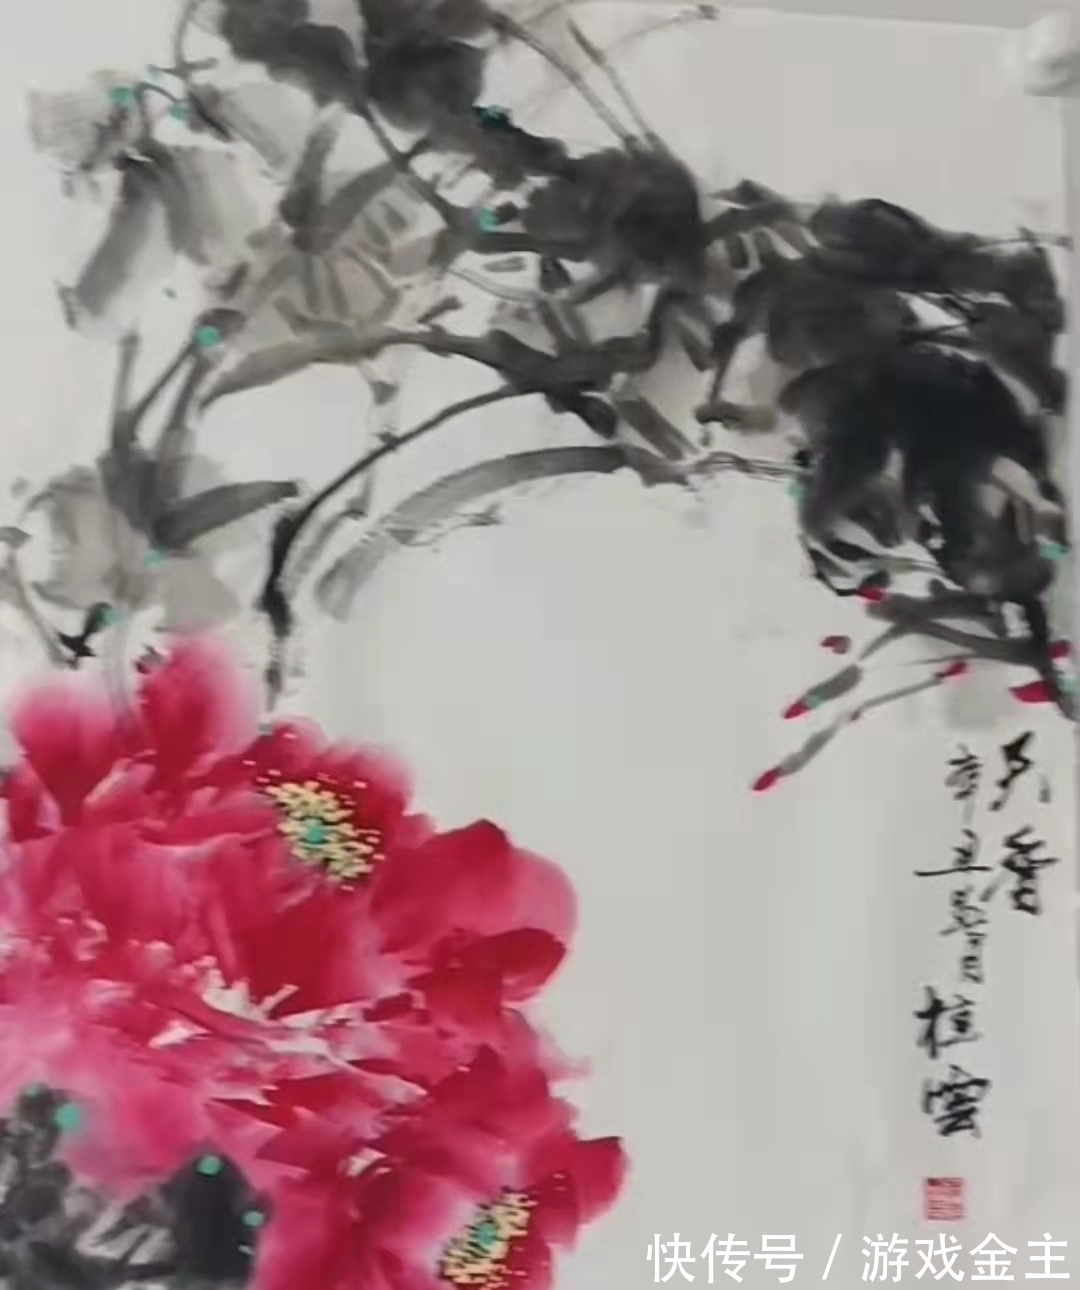 天香
辛丑
桂雲
快传号 / 游戏金主